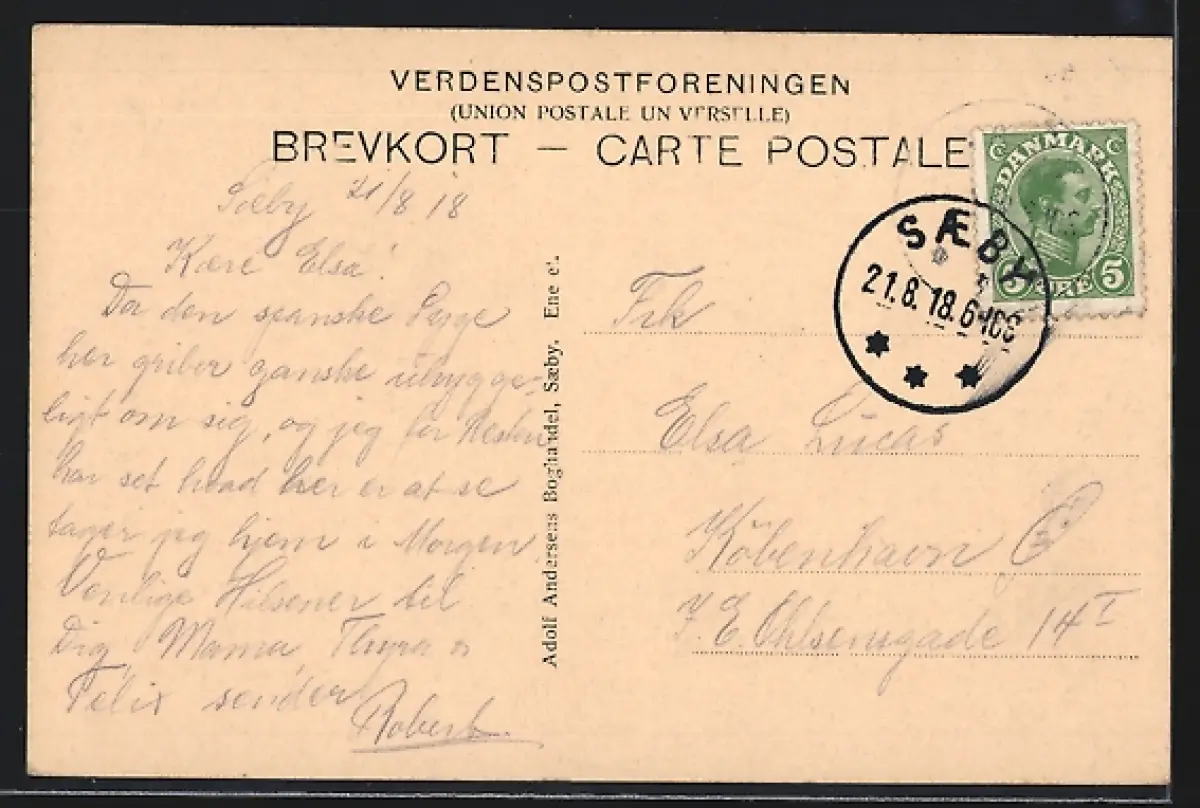 VERDENSPOSTFORENINGEN
(UNION POSTALE UNIVERSELLE)
BREVKORT — CARTE POSTALE
DANMARK
5 ØRE 5
SÆBY
21.8.18.6
Sæby 21/8 18
Kære Elsa!
Da den spanske Syge
her griber ganske uhygge-
ligt om sig, og jeg for Resten
har set hvad her er at se
tager jeg hjem i Morgen
Venlige Hilsener til
Dig, Mama, Thyra
Felix sender
Robert.
Adolf Andersens Boghandel, Sæby. Ene e.
Frk
Elsa Lucas
København Ø
J. E. Ohlsensgade 14 I